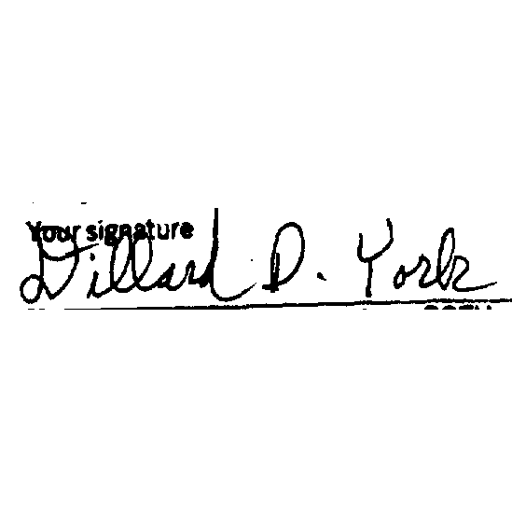 Your signature
Willard D. York